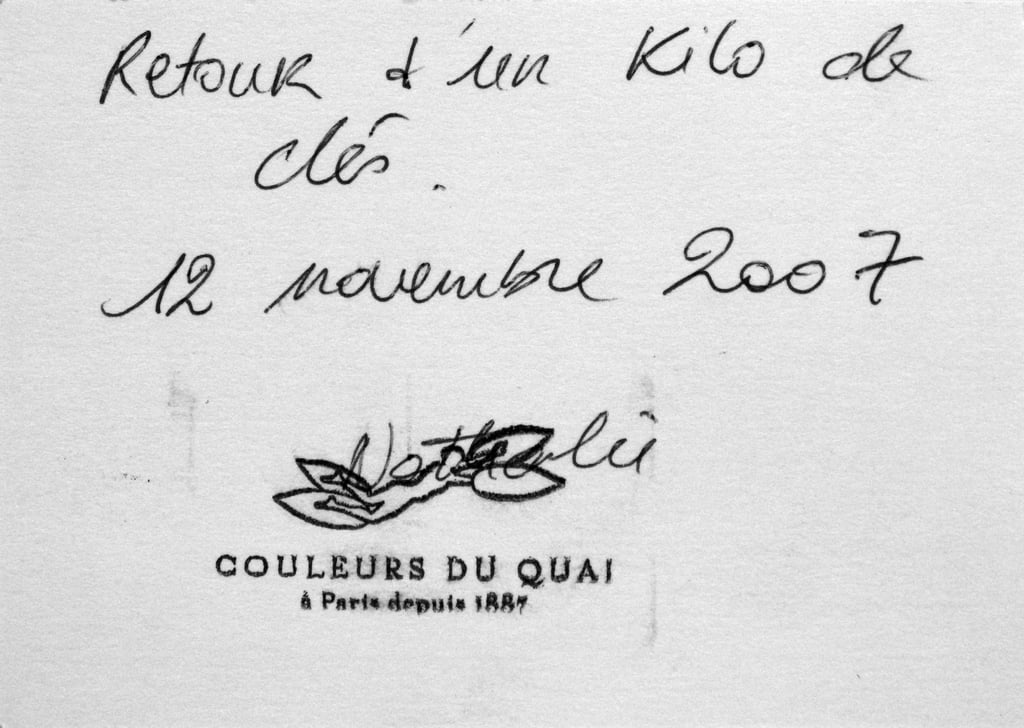 Retour d'un Kilo de
clés.
12 novembre 2007
Nathalie
COULEURS DU QUAI
à Paris depuis 1887